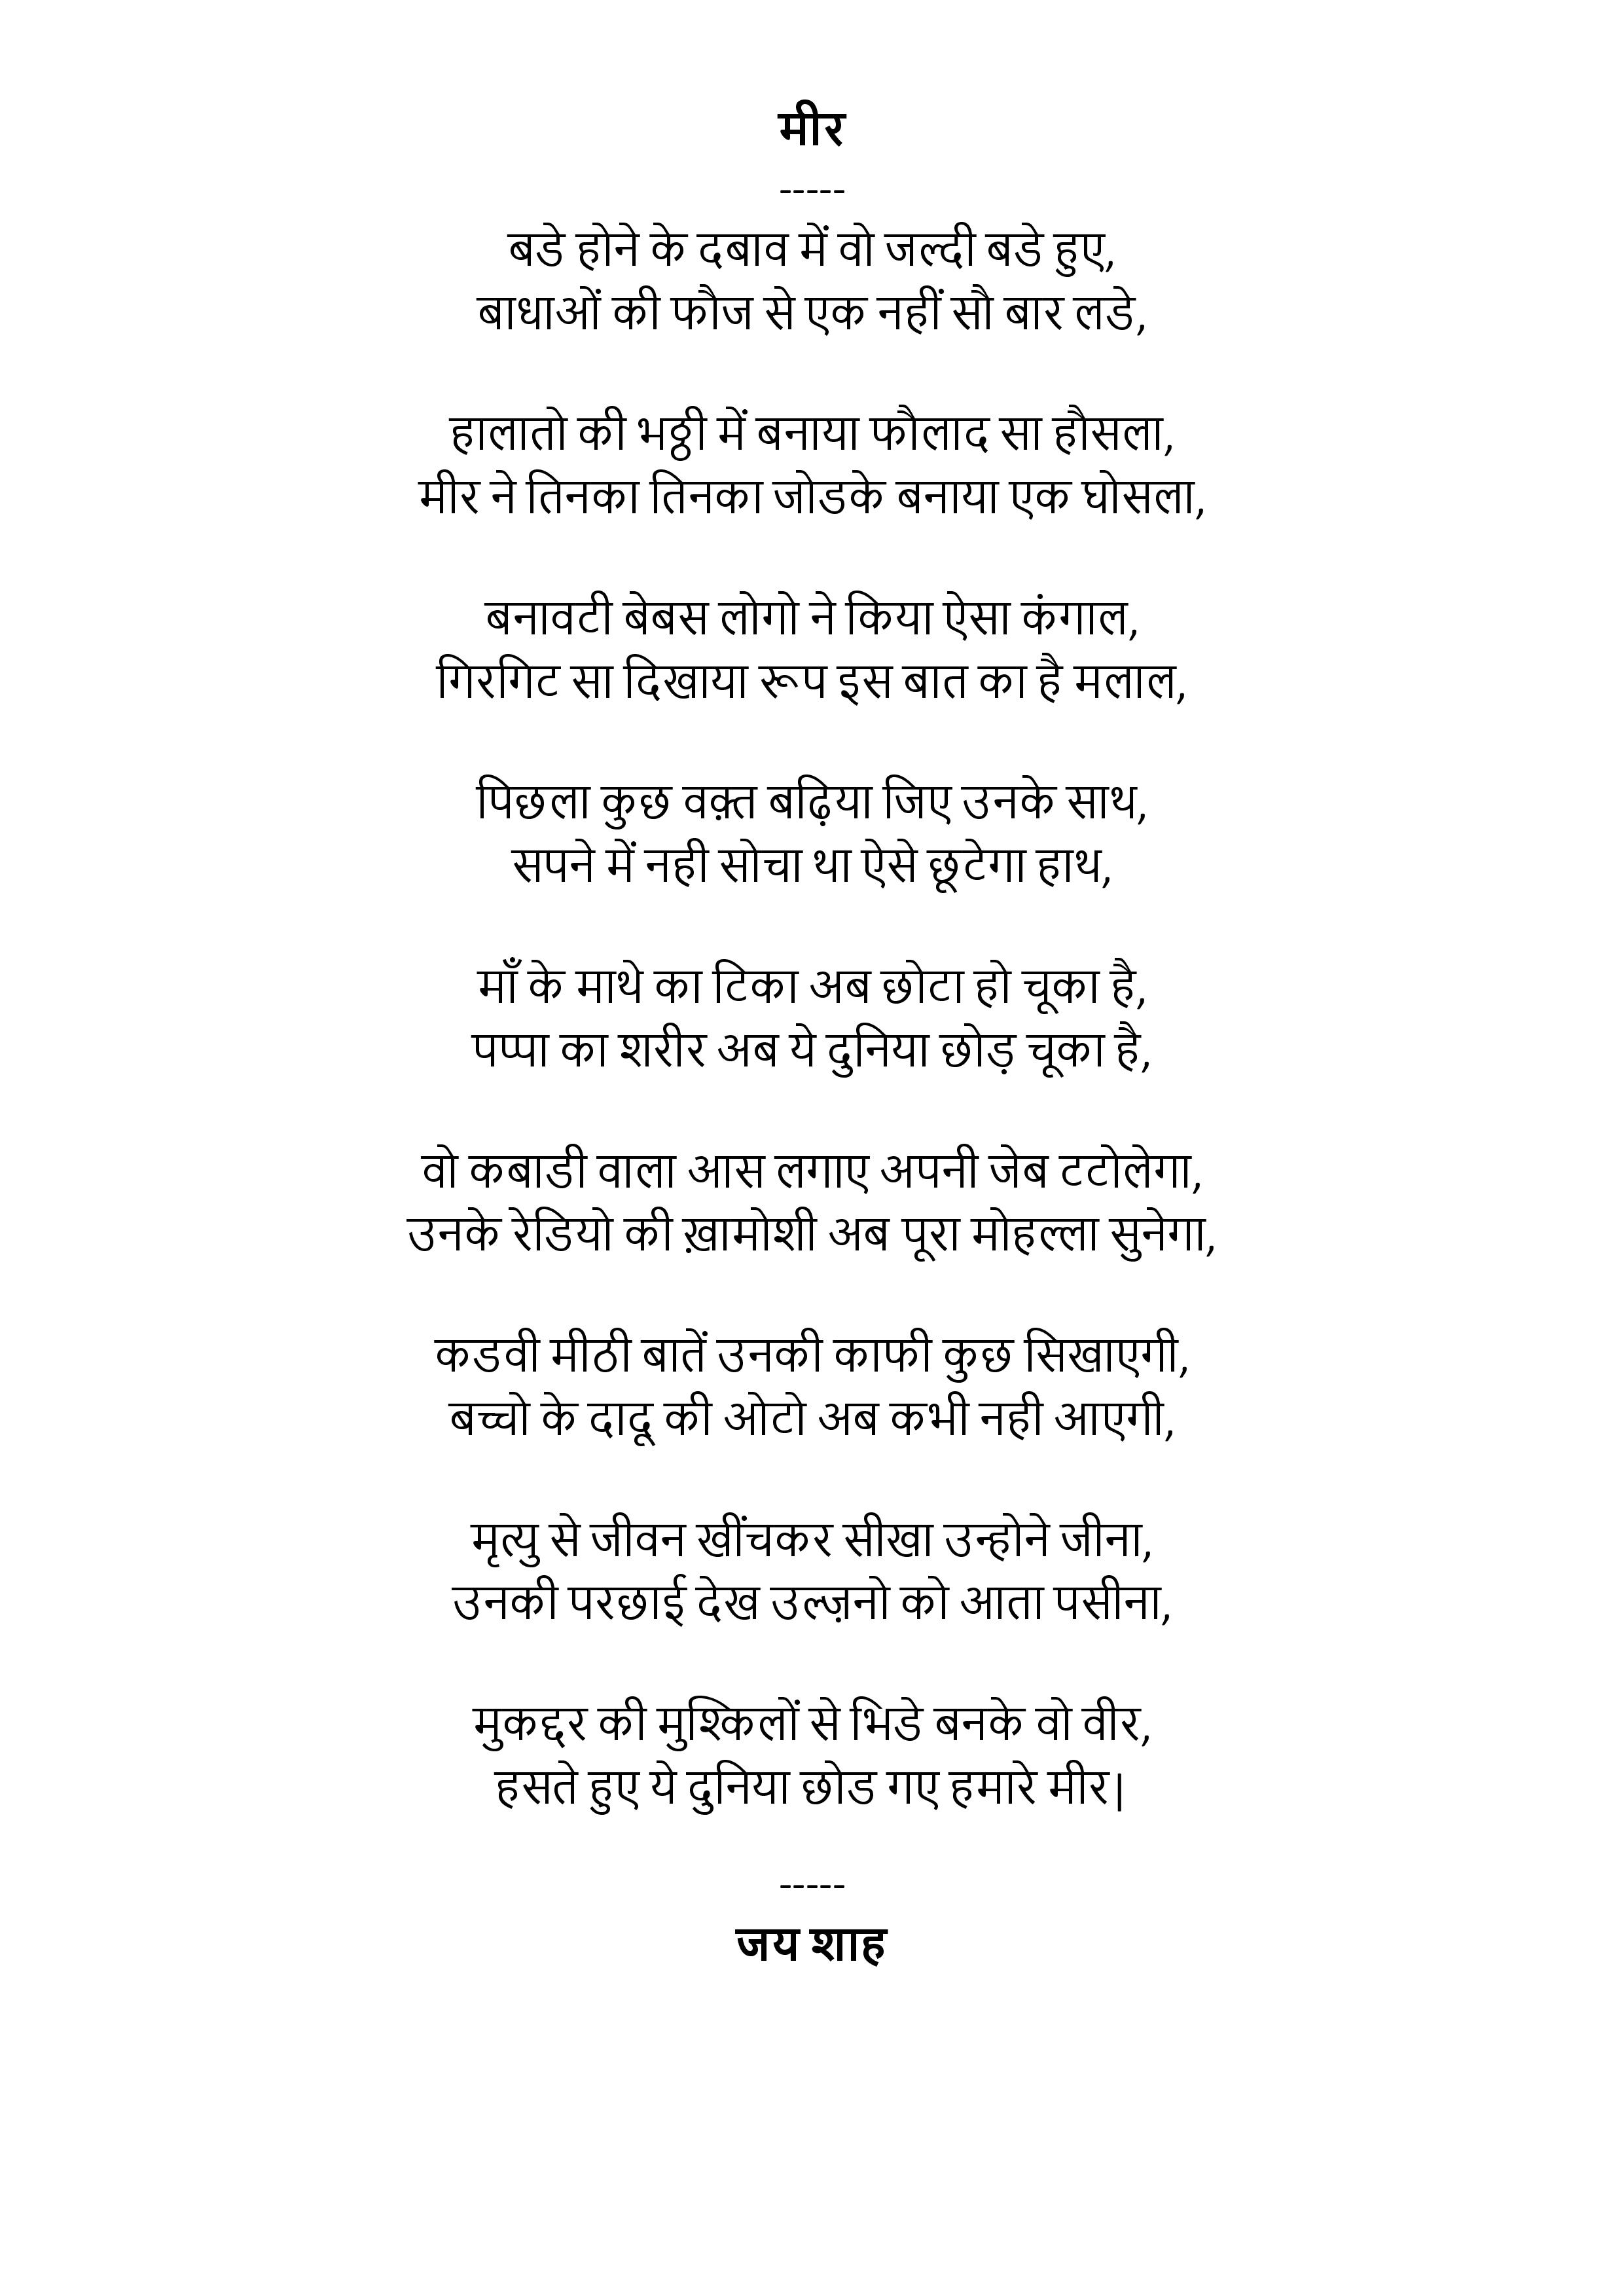 मीर
-----
बडे होने के दबाव में वो जल्दी बडे हुए,
बाधाओं की फौज से एक नहीं सौ बार लडे,
हालातो की भठ्ठी में बनाया फौलाद सा हौसला,
मीर ने तिनका तिनका जोडके बनाया एक घोसला,
बनावटी बेबस लोगो ने किया ऐसा कंगाल,
गिरगिट सा दिखाया रूप इस बात का है मलाल,
पिछला कुछ वक़्त बढ़िया जिए उनके साथ,
सपने में नही सोचा था ऐसे छूटेगा हाथ,
माँ के माथे का टिका अब छोटा हो चूका है,
पप्पा का शरीर अब ये दुनिया छोड़ चूका है,
वो कबाडी वाला आस लगाए अपनी जेब टटोलेगा,
उनके रेडियो की ख़ामोशी अब पूरा मोहल्ला सुनेगा,
कडवी मीठी बातें उनकी काफी कुछ सिखाएगी,
बच्चो के दादू की ओटो अब कभी नही आएगी,
मृत्यु से जीवन खींचकर सीखा उन्होने जीना,
उनकी परछाई देख उल्ज़नो को आता पसीना,
मुकद्दर की मुश्किलों से भिडे बनके वो वीर,
हसते हुए ये दुनिया छोड गए हमारे मीर|
-----
जय शाह